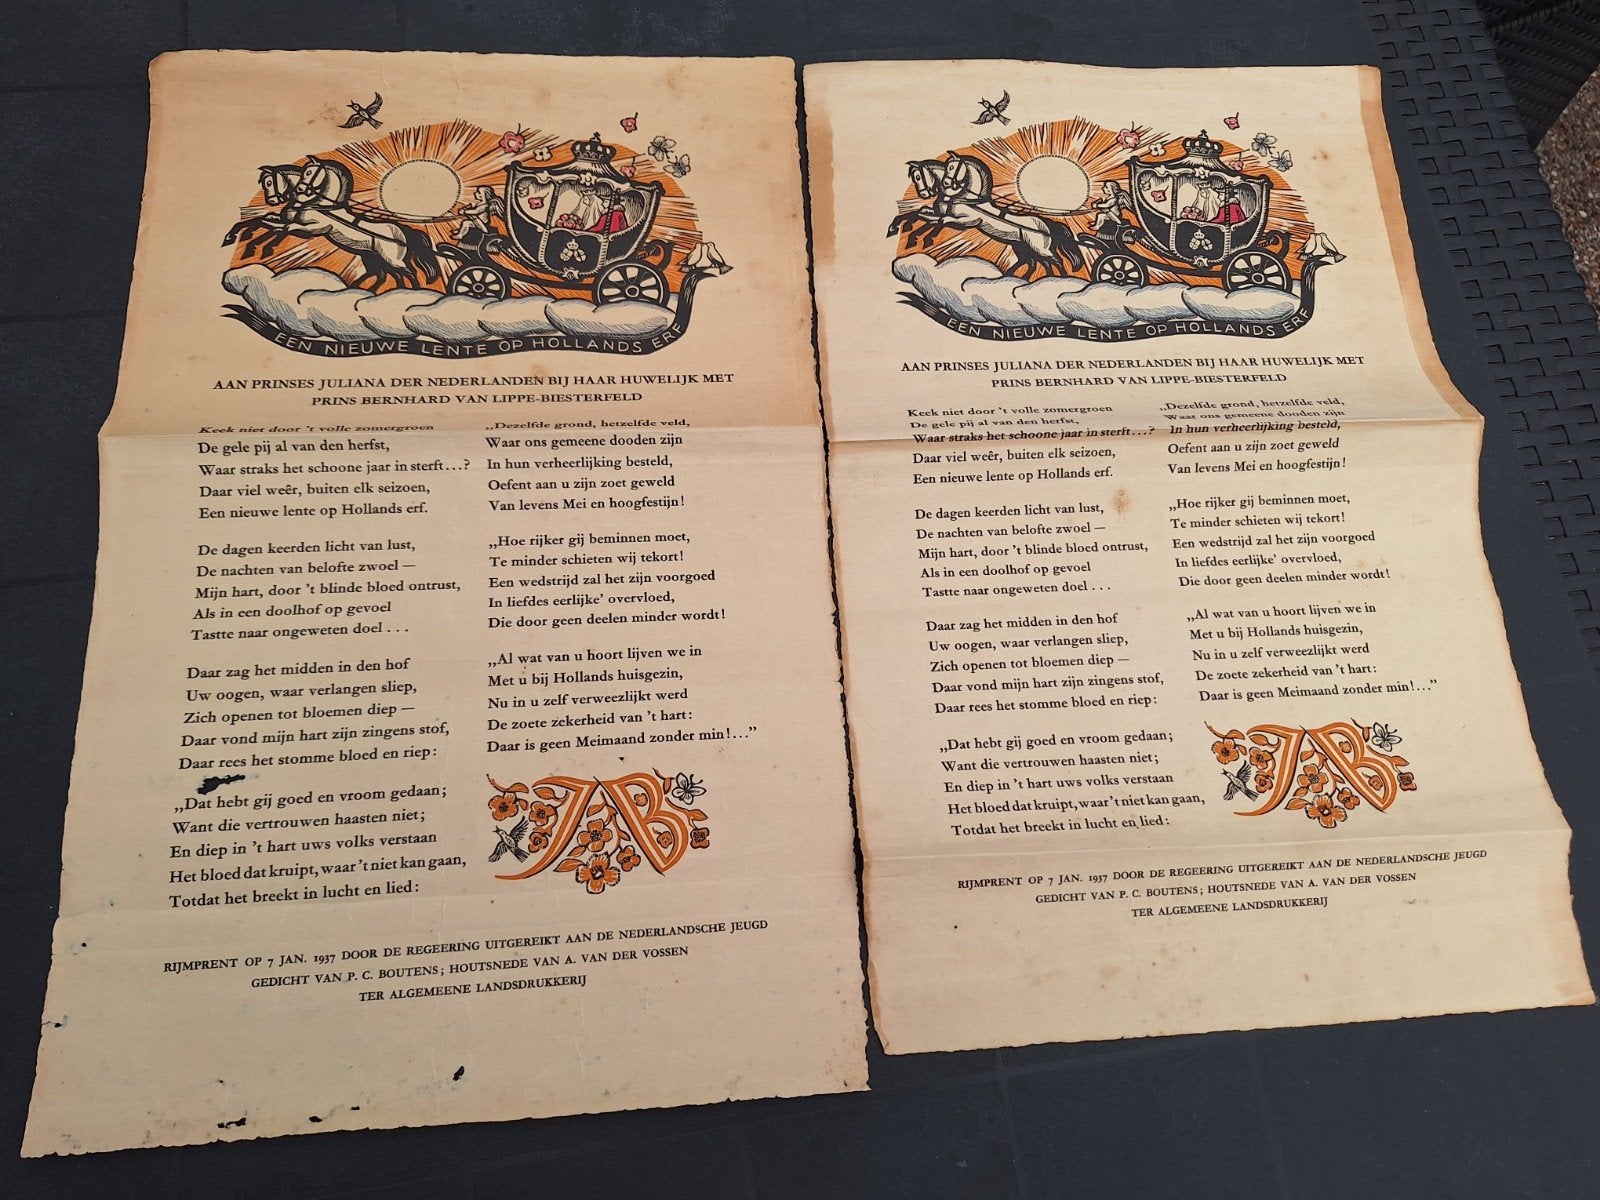 EEN NIEUWE LENTE OP HOLLANDS ERF
AAN PRINSES JULIANA DER NEDERLANDEN BIJ HAAR HUWELIJK MET
PRINS BERNHARD VAN LIPPE-BIESTERFELD
Keek niet door 't volle zomergroen
De gele pij al van den herfst,
Waar straks het schoone jaar in sterft...?
Daar viel weêr, buiten elk seizoen,
Een nieuwe lente op Hollands erf.
De dagen keerden licht van lust,
De nachten van belofte zwoel —
Mijn hart, door 't blinde bloed ontrust,
Als in een doolhof op gevoel
Tastte naar ongeweten doel . . .
Daar zag het midden in den hof
Uw oogen, waar verlangen sliep,
Zich openen tot bloemen diep —
Daar vond mijn hart zijn zingens stof,
Daar rees het stomme bloed en riep:
„Dat hebt gij goed en vroom gedaan;
Want die vertrouwen haasten niet;
En diep in 't hart uws volks verstaan
Het bloed dat kruipt, waar 't niet kan gaan,
Totdat het breekt in lucht en lied:
„Dezelfde grond, hetzelfde veld,
Waar ons gemeene dooden zijn
In hun verheerlijking besteld,
Oefent aan u zijn zoet geweld
Van levens Mei en hoogfestijn!
„Hoe rijker gij beminnen moet,
Te minder schieten wij tekort!
Een wedstrijd zal het zijn voorgoed
In liefdes eerlijke' overvloed,
Die door geen deelen minder wordt!
„Al wat van u hoort lijven we in
Met u bij Hollands huisgezin,
Nu in u zelf verweezlijkt werd
De zoete zekerheid van 't hart:
Daar is geen Meimaand zonder min!..."
JB
RIJMPRENT OP 7 JAN. 1937 DOOR DE REGEERING UITGEREIKT AAN DE NEDERLANDSCHE JEUGD
GEDICHT VAN P. C. BOUTENS; HOUTSNEDE VAN A. VAN DER VOSSEN
TER ALGEMEENE LANDSDRUKKERIJ
EEN NIEUWE LENTE OP HOLLANDS ERF
AAN PRINSES JULIANA DER NEDERLANDEN BIJ HAAR HUWELIJK MET
PRINS BERNHARD VAN LIPPE-BIESTERFELD
Keek niet door 't volle zomergroen
De gele pij al van den herfst,
Waar straks het schoone jaar in sterft...?
Daar viel weêr, buiten elk seizoen,
Een nieuwe lente op Hollands erf.
De dagen keerden licht van lust,
De nachten van belofte zwoel —
Mijn hart, door 't blinde bloed ontrust,
Als in een doolhof op gevoel
Tastte naar ongeweten doel . . .
Daar zag het midden in den hof
Uw oogen, waar verlangen sliep,
Zich openen tot bloemen diep —
Daar vond mijn hart zijn zingens stof,
Daar rees het stomme bloed en riep:
„Dat hebt gij goed en vroom gedaan;
Want die vertrouwen haasten niet;
En diep in 't hart uws volks verstaan
Het bloed dat kruipt, waar 't niet kan gaan,
Totdat het breekt in lucht en lied:
„Dezelfde grond, hetzelfde veld,
Waar ons gemeene dooden zijn
In hun verheerlijking besteld,
Oefent aan u zijn zoet geweld
Van levens Mei en hoogfestijn!
„Hoe rijker gij beminnen moet,
Te minder schieten wij tekort!
Een wedstrijd zal het zijn voorgoed
In liefdes eerlijke' overvloed,
Die door geen deelen minder wordt!
„Al wat van u hoort lijven we in
Met u bij Hollands huisgezin,
Nu in u zelf verweezlijkt werd
De zoete zekerheid van 't hart:
Daar is geen Meimaand zonder min!..."
JB
RIJMPRENT OP 7 JAN. 1937 DOOR DE REGEERING UITGEREIKT AAN DE NEDERLANDSCHE JEUGD
GEDICHT VAN P. C. BOUTENS; HOUTSNEDE VAN A. VAN DER VOSSEN
TER ALGEMEENE LANDSDRUKKERIJ